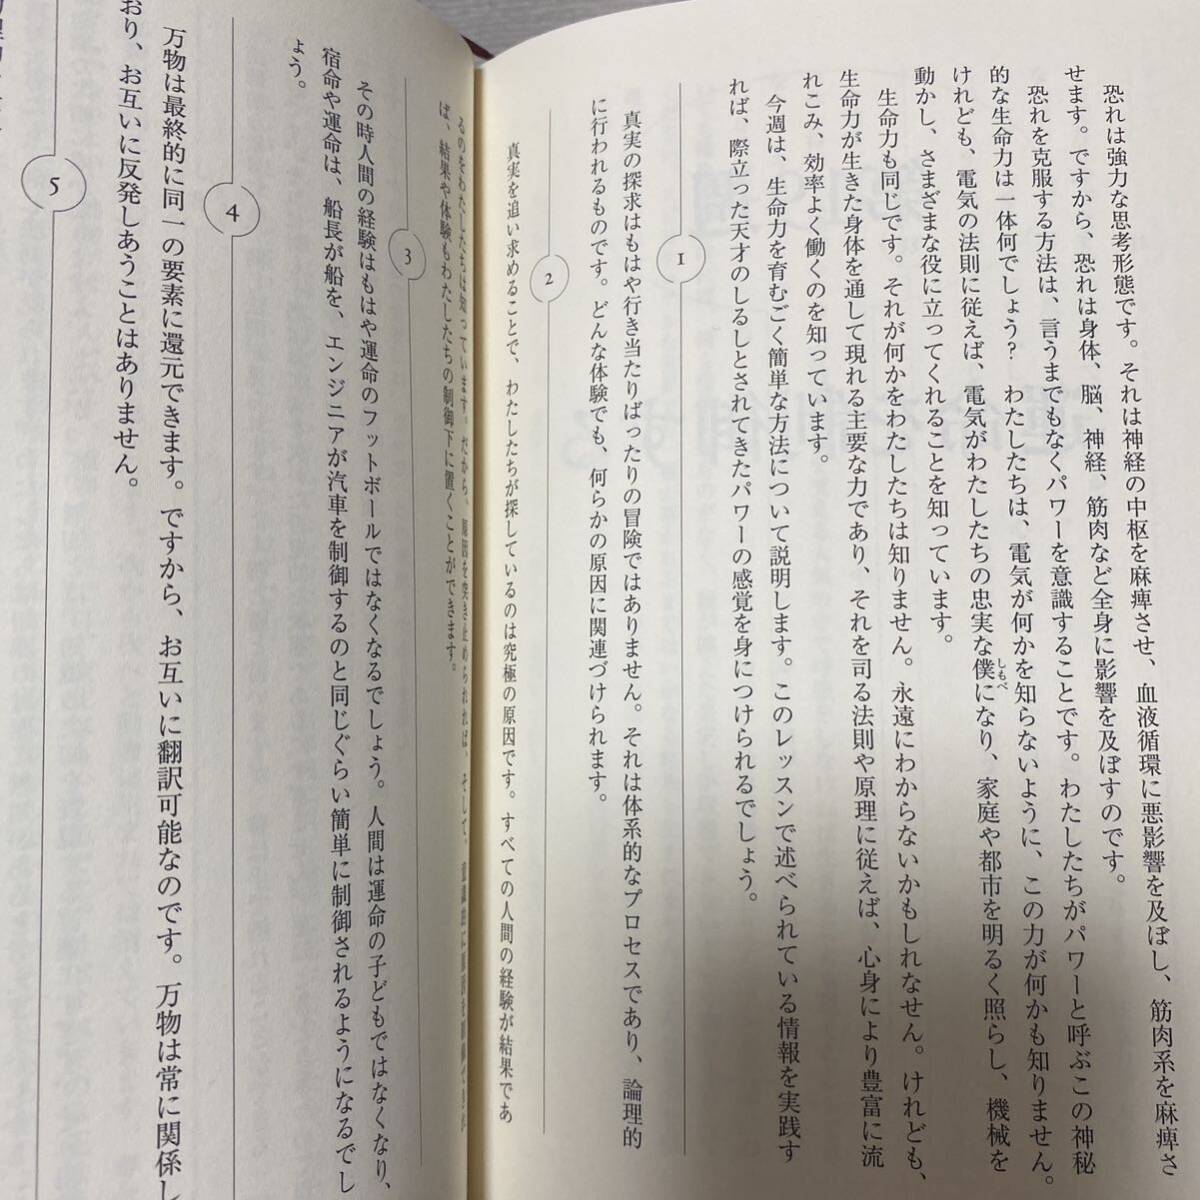 恐れは強力な思考形態です。それは神経の中枢を麻痺させ、血液循環に悪影響を及ぼし、筋肉系を麻痺さ
せます。ですから、恐れは身体、脳、神経、筋肉など全身に影響を及ぼすのです。
恐れを克服する方法は、言うまでもなくパワーを意識することです。わたしたちがパワーと呼ぶこの神秘
的な生命力は一体何でしょう? わたしたちは、電気が何かを知らないように、この力が何かも知りません。
けれども、電気の法則に従えば、電気がわたしたちの忠実な僕になり、家庭や都市を明るく照らし、機械を
しもべ
動かし、さまざまな役に立ってくれることを知っています。
生命力も同じです。それが何かをわたしたちは知りません。永遠にわからないかもしれなせん。けれども、
生命力が生きた身体を通して現れる主要な力であり、それを司る法則や原理に従えば、心身により豊富に流
れこみ、効率よく働くのを知っています。
今週は、生命力を育むごく簡単な方法について説明します。このレッスンで述べられている情報を実践す
れば、際立った天才のしるしとされてきたパワーの感覚を身につけられるでしょう。
1
真実の探求はもはや行き当たりばったりの冒険ではありません。それは体系的なプロセスであり、論理的
に行われるものです。どんな体験でも、何らかの原因に関連づけられます。
2
真実を追い求めることで、わたしたちが探しているのは究極の原因です。すべての人間の経験が結果であ
るのをわたしたちは知っています。だから、原因を突き止められれば、そして、意識的に原因を
ば、結果や体験もわたしたちの制御下に置くことができます。
3
その時人間の経験はもはや運命のフットボールではなくなるでしょう。人間は運命の子どもではなくなり、
宿命や運命は、船長が船を、エンジニアが汽車を制御するのと同じぐらい簡単に制御されるようになるでし
ょう。
4
万物は最終的に同一の要素に還元できます。ですから、お互いに翻訳可能なのです。万物は常に関係し
おり、お互いに反発しあうことはありません。
5